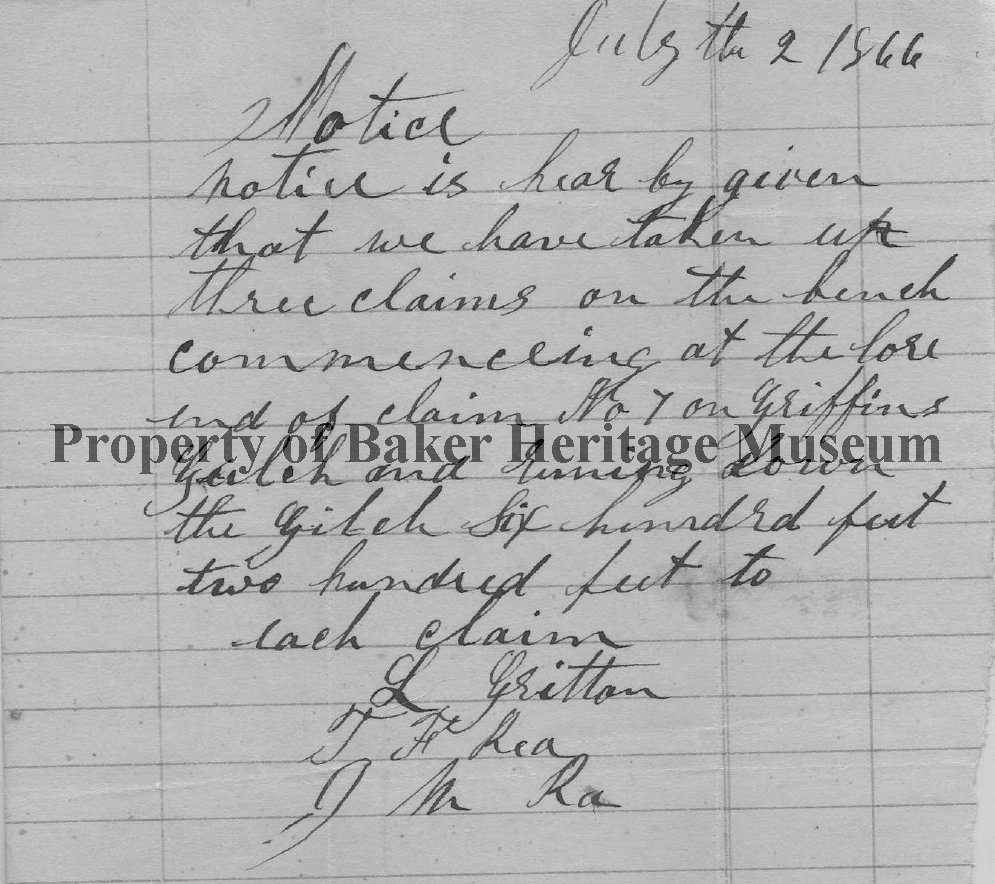 July the 2 1866
Notice
notice is hear by given
that we have taken up
three claims on the bench
commenceing at the lore
end of claim No 7 on Griffins
Property of Baker Heritage Museum
Gulch and runing down
the Gilch Six hundred feet
two hundred feet to
each claim
L Gritton
T F Rea
J M Ra